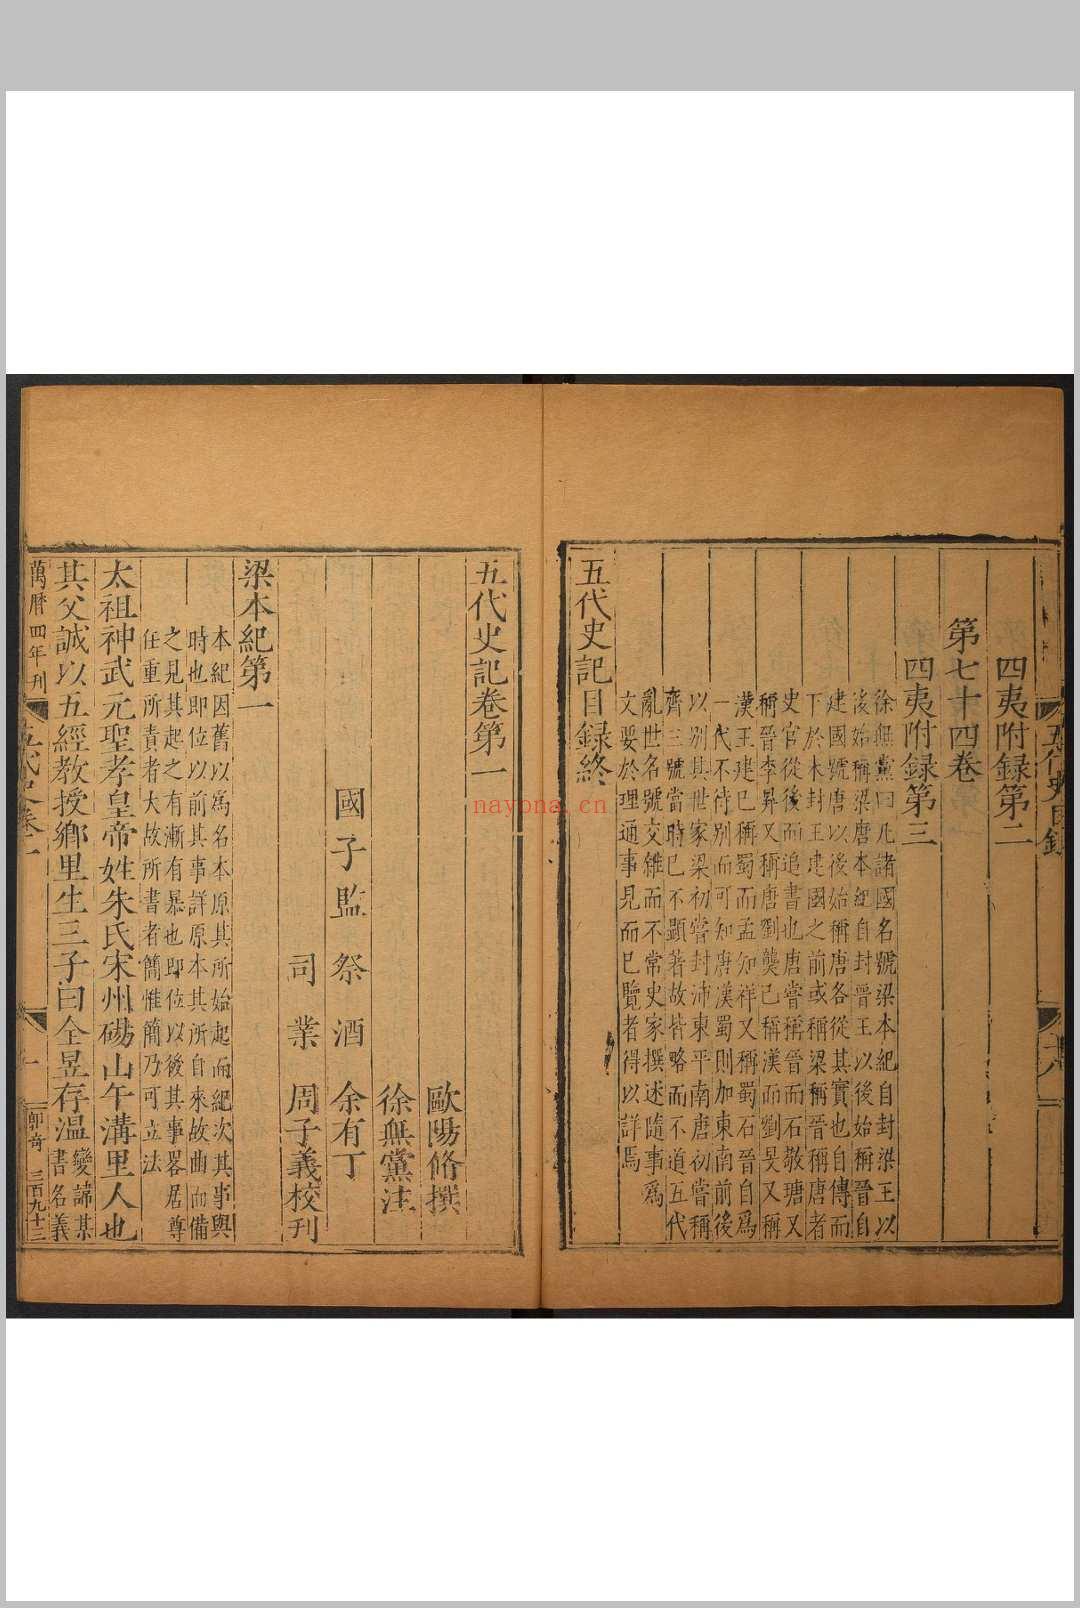 四夷附録第二
第七十四卷
四夷附録第三
徐無黨曰凡諸國名號梁本紀自封梁王以
後始稱梁唐本紀自封晉王以後始稱晉自
建國號唐以後始稱唐各從其實也自傳而
下於未封王建國之前或稱梁稱晉稱唐者
史官從後而追書也唐嘗稱晉而石敬瑭又
稱晉李昪又稱唐劉龑已稱漢而劉旻又稱
漢王建已稱蜀而孟知祥又稱蜀石晉自爲
一代不待別而可知唐漢蜀則加東南前後
以別其世家梁初嘗封沛東平南唐初嘗稱
齊三號當時已不顯著故皆略而不道五代
亂世名號交雜而不常史家撰述隨事爲
文要於理通事見而已覽者得以詳焉
五代史記目録終
五代史記卷第一
歐陽脩撰
徐無黨注
國子監祭酒 余有丁
司業 周子義校刊
梁本紀第一
本紀因舊以爲名本原其所始起而紀次其事與
時也即位以前其事詳原本其所自來故曲而備
之見其起之有漸有暴也即位以後其事畧居尊
任重所責者大故所書者簡惟簡乃可立法
太祖神武元聖孝皇帝姓朱氏宋州碭山午溝里人也
其父誠以五經教授鄉里生三子曰全昱存温
變諱某
書名義
萬曆四年刊
一
郭奇
三百九十三
nayona.cn